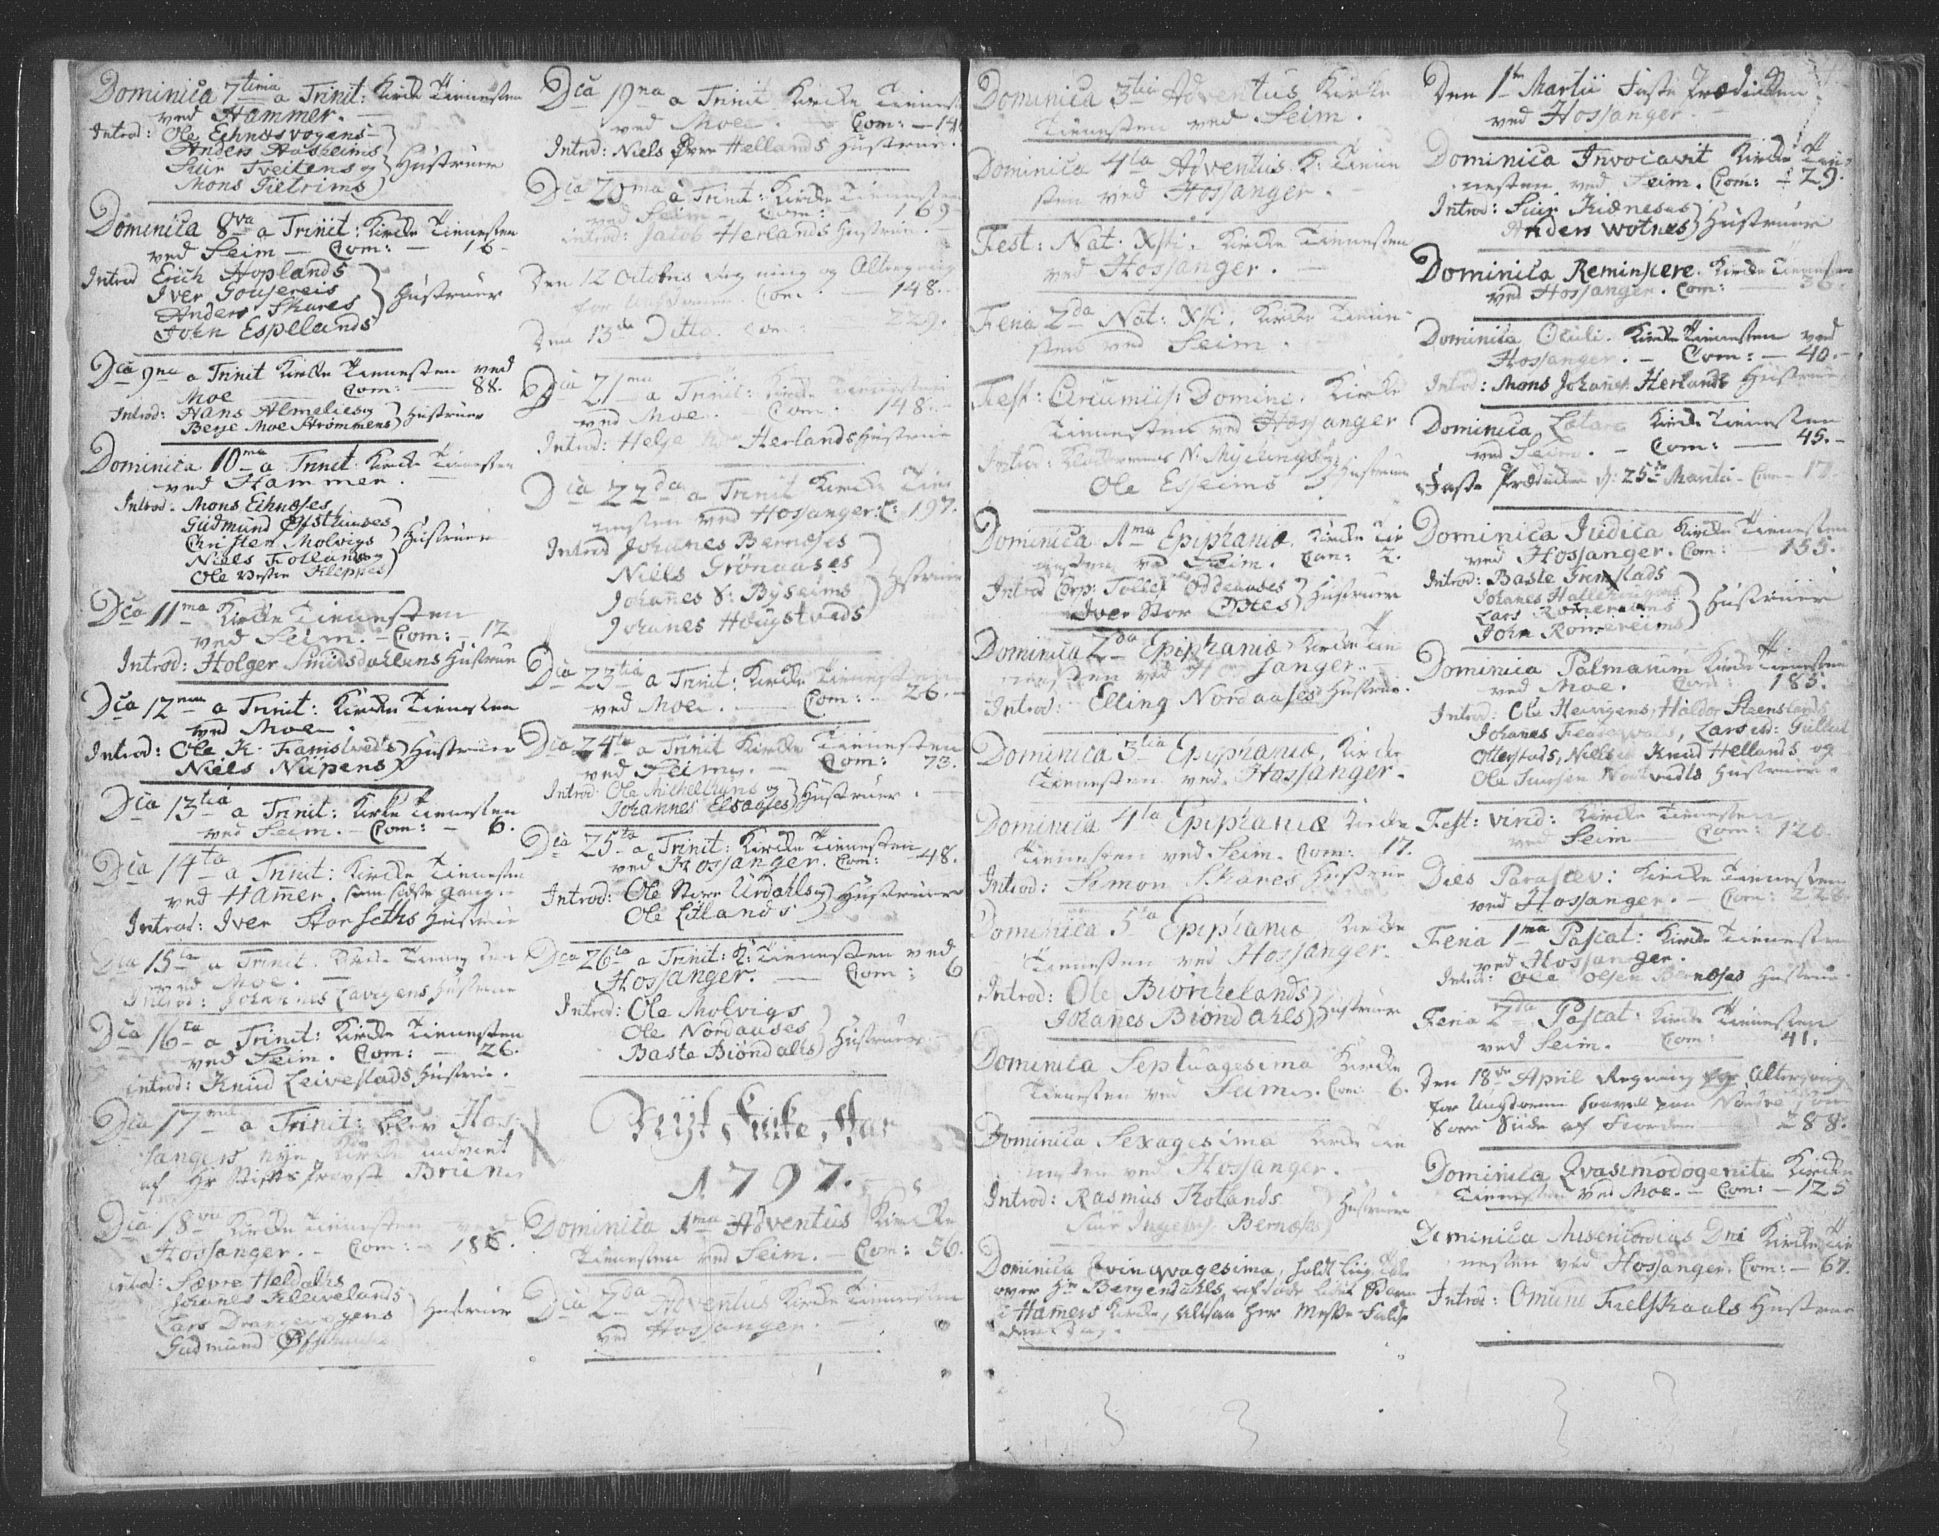 Dominica 7tima a Trinit: Kirke Tienesten
ved Hammer.
Introd: Ole Eihnæsvogens
Anders Hosheims
Siur Tveitens og
Mons Fietrims } Hustruer
Dominica 8va a Trinit: Kirke Tienesten
ved Seim — Com: — 16
Introd Erich Hoplands
Iver Gousereis
Anders Skares
John Espelands } Hustruer
Dca 9na a Trinit Kirke Tienesten ved
Moe — Com: — 88.
Introd: Hans Almelies og
Berje Moe Strømmens } Hustruer
Dominica 10ma a Trinit: Kirke Tienesten
ved Hammer.
Introd: Mons Eihnæses
Gudmund Øfsthuuses
Christen Molvigs
Niels Follands og
Ole Kleppes } Hustruer
Dca 11ma Kirke Tienesten
ved Seim. — Com: — 12
Introd: Holger Smidsdahlens Hustrue
Dca 12ma a Trinit: Kirke Tienesten
ved Moe
Introd: Ole K. Famestveds
Niels Nüpens } Hustruer
Dca 13tia a Trinit: Kirke Tienesten
ved Seim. — Com: — 6.
Dca 14ta a Trinit: Kirke Tienesten
ved Hamer, som sidste gang.
Introd: Iver Storseths Hustrue
Dca 15ta a Trinit. Kirke Tienesten
ved Moe.
Introd: Johannes Lavigens Hustrue
Dca 16ta a Trinit: Kirke Tienesten
ved Seim. Com: — 26.
introd: Knud Leivestads Hustrue.
Dca 17ma a Trinit: blev Hos-
sangers nye Kirke indviet
af Hr Stifts Provst Bruen
Dca 18va Kirke Tienesten ved
Hossanger. — Com: — 186.
introd: Sævre Heldahls
Johanes Kleivelands
Lars
Gudmund } Hustruer
Dca 19na a Trinit Kirke Tienest
ved Moe. Com: — 14
Introd: Niels Øvre Hellands Hustrue.
Dca 20ma a Trinit: Kirke Tienesten
ved Seim — Com: 169
introd: Jacob Herlands Hustrue.
Den 12 Octobris og Altergang
for Com. 148.
Den 13de Ditto. Com: 229.
Dca 21ma a Trinit: Kirke Tienesten
ved Moe. Com. 148.
Introd: Helje Herlands Hustrue
Dca 22da a Trinit Kirke Tie-
nesten ved Hossanger. C: 197.
Introd Johanes Bernæses
Niels Grönaases
Johanes S. Byseims
Johanes Hougstveds } Hustruer
Dca 23tia a Trinit: Kirke Tienesten
ved Moe. — Com: 26.
Dca 24ta a Trinit Kirke Tienesten
ved Seim. — Com: 73.
Introd: Ole Mikkelthuns og
Johannes Elsaases } Hustruer.
Dca 25ta a Trinit: Kirke Tienesten
ved Hossanger. Com: — 48.
Introd: Ole Store Urdahls og
Ole Eitlands } Hustruer
Dca 26ta a Trinit: K: Tienesten ved
Hossanger. — Com: 6
Introd: Ole Molvigs
Ole Nordaases
Baste Biöndahls } Hustruer.
Nyt Kirke Aar
1797.
Dominica 1ma Adventus Kirke
Tienesten ved Seim. — Com: 36.
Dca 2da Adventus Kirke Tienesten
ved Hossanger.
Dominica 3tia Adventus Kirke
Tienesten ved Seim.
Dominica 4ta Adventus K: Tiene
sten ved Hossanger.
Fest: Nat: Xsti. Kirke Tienesten
ved Hossanger.
Feria 2da Nat: Xsti. Kirke Tiene-
sten ved Seim.
Fest: Circumcis: Domini. Kirke
Tienesten ved Hossanger
Introd: N: Myckings
Ole Esseims } Hustruer
Dominica 1ma Epiphaniæ, Kirke Tie
nesten ved Seim. Com: 2.
Introd Corp: Tollef Oddeaases
Iver Stor } Hustruer
Dominica 2da Epiphaniæ Kirke Tie
nesten ved Hossanger.
Introd: Elling Nordaases Hustrue.
Dominica 3tia Epiphaniæ, Kirke
Tienesten ved Hossanger.
Dominica 4ta Epiphaniæ Kirke
Tienesten ved Seim. Com: 17.
Introd: Simon Skares Hustrue
Dominica 5ta Epiphaniæ Kirke
Tienesten ved Hossanger.
Introd: Ole Biörchelands
Johanes Biöndahls } Hustruer
Dominica Septuagesima Kirke
Tienesten ved Seim. Com: 6.
Dominica Sexagesima Kirke Tie
nesten ved Hossanger.
Introd: Rasmus Rotlands
Siur Bernæses } Hustruer
Dominica Qvinqvagesima, holdt Liig Tale
over Hr Bergendahls
i Hamers Kirke, altsaa her Messe Fald
denne Dag.
Den 1te Martii Faste Prædiken
ved Hossanger
Dominica Invocavit Kirke Tie-
nesten ved Seim. Com: — 29.
Introd: Siur Kidnesas
Anders Wotnes } Hustruer
Dominica Reminscere. Kirke Tienesten
ved Hossanger. Com: — 36.
Dominica Oculi. Kirke Tienesten ved
Hossanger. — Com: — 40.
Introd: Mons Johanes: Herlands Hustrue
Dominica Lætare Kirke Tienesten
ved Seim. — Com: — 45.
Faste Prædiken d: 25te Martii — Com — 17.
Dominica Judica Kirke Tienesten
ved Hossanger. Com: — 155.
Introd: Baste Grimstads
Johanes Hallehougens
Lars Romereims
John Romereims } Hustruer
Dominica Palmarum Kirke Tienesten
ved Moe. Com: 185.
Introd: Ole Heivigens, Haldor Steenslands
Johanes Lars
Niels Knud Hellands og
Ole Hustruer.
Fest: virid: Kirke Tienesten
ved Seim — Com: 120
Dies Parascev: Kirke Tienesten
ved Hossanger. — Com: 226.
Feria 1ma Pascat: Kirke Tienesten
ved Hossanger.
Introd: Ole Olsen Bernæses Hustrue.
Feria 2da Pascat: Kirke Tienesten
ved Seim. Com: 41.
Den 18de April og Altergang
for Ungdommen saavel paa Nordre som
Søre Side af Fiorden — 288.
Dominica Qvasimodogeniti Kirke
Tienesten ved Moe. — Com: — 125
Dominica Misericordias Dni Kirke Tie
nesten ved Hossanger. Com: — 67.
Introd: Omund Fielskaals Hustrue